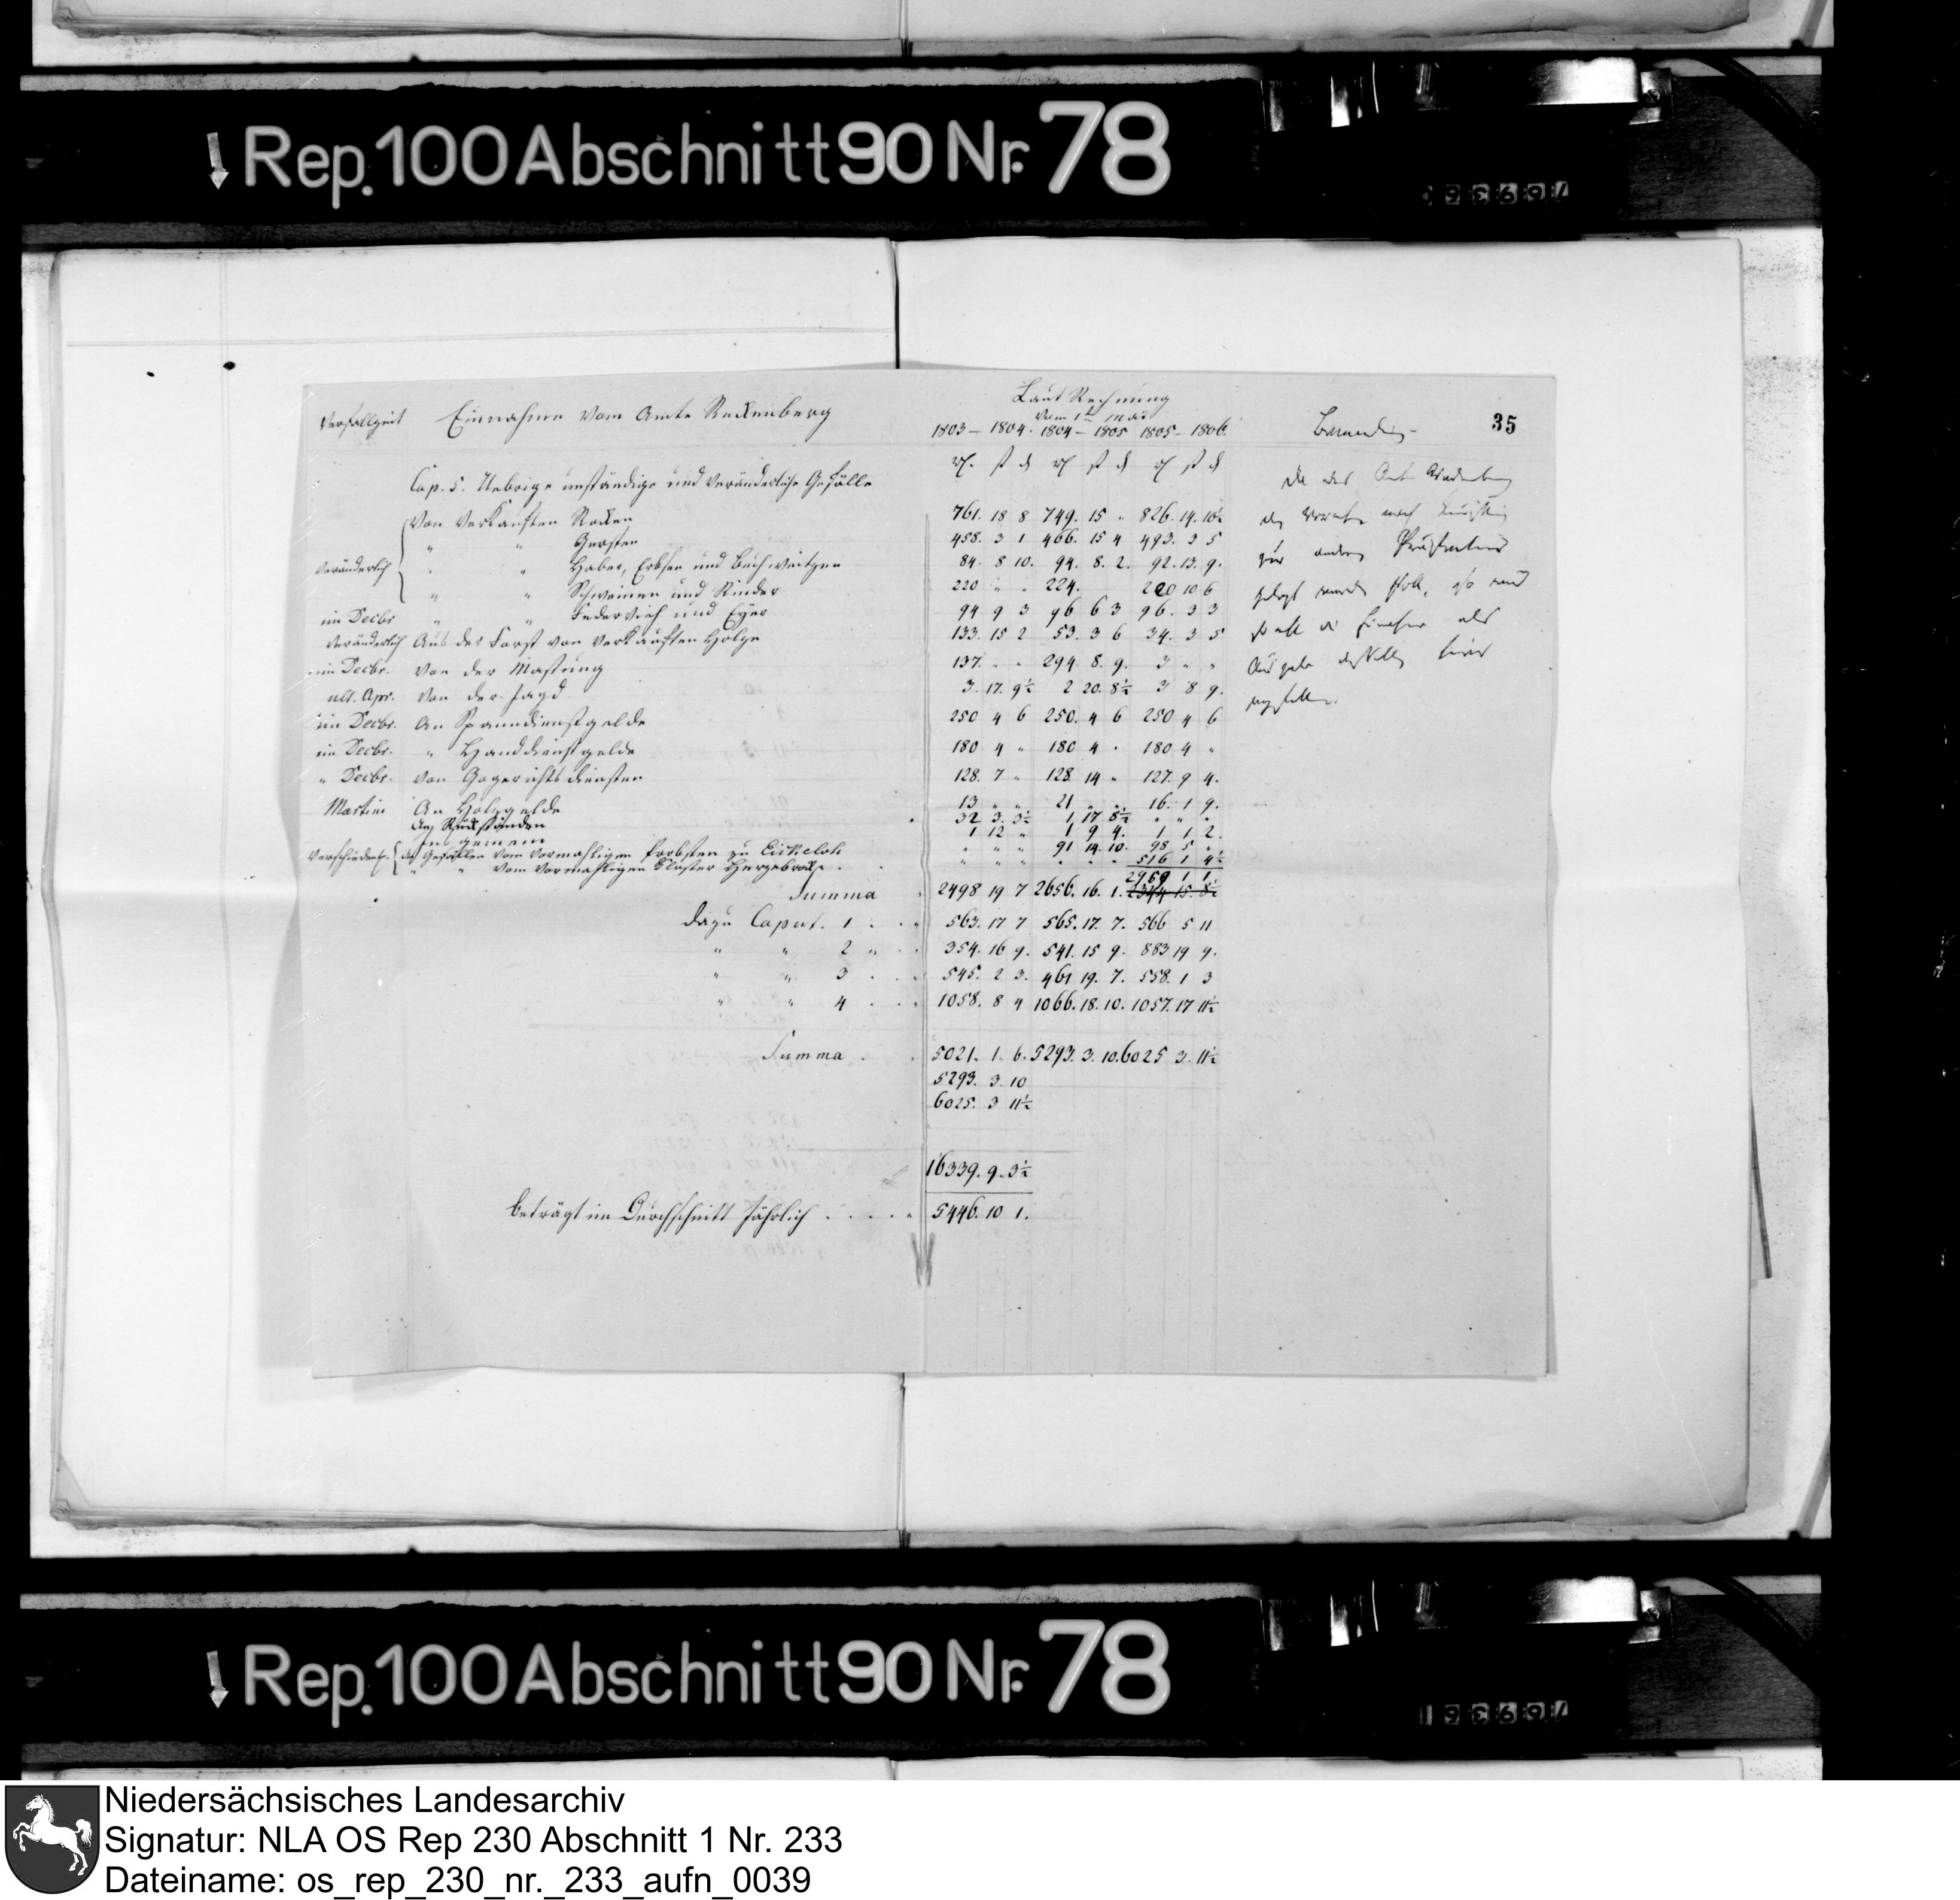 Rep. 100 Abschnitt 90 Nr. 78
35
Verfallzeit Einnahme vom Amte Reckenberg Laut Rechnung
vom 1t Mai
1803 – 1804. 1804 – 1805 1805 – 1806.
Cap. 5. Uebrige unständige und veränderliche Gefälle
Von verkauften Rocken 761. 18 8 749. 15 „ 826. 14. 10½
„ „ Gersten 458. 3 1 466. 15 4 493. 3 5
veränderlich „ „ Haber, Erbsen und Buchweitzen 84. 8 10. 94. 8. 2. 92. 13. 9.
„ „ Schweinen und Rinder 220 „ „ 224. 220 10 6
im Decbr. „ „ Federvieh und Eyer 94 9 3 96 6 3 96. 3 3
veränderlich Aus der Forst von verkauften Holze 133. 15 2 53. 3 6 34. 3 5
im Decbr. Von der Mastung 137. „ „ 294. 8. 9. 3 „ „
ult. Apr. Von der Jagd 3. 17. 9½ 2 20. 8½ 3 8 9.
im Decbr. An Spanndienstgelde 250 4 6 250. 4 6 250 4 6
im Decbr. „ Handdienstgelde 180 4 „ 180 4 „ 180 4 „
„ Decbr. Von Gogerichtsdiensten 128. 7 „ 128 14 „ 127. 9 4.
Martini An Holzgelde 13 „ „ 21 „ „ 16. 1 9.
An Rückständen 32 3. 3½ 1 17 8½ „ „ „
Ins gemein 1 12 „ 1 9 4. 1 1 2.
An Gefällen vom vormahligen Probsten zu Eickeloh „ „ „ 91 14. 10. 98 5 „
„ „ vom vormahligen Kloster Herzebrock „ „ „ „ „ „ 516 1 4½
2959 1 1
Summa 2498 19 7 2656. 16. 1.
dazu Caput. 1 563. 17 7 565. 17. 7. 566 5 11
„ „ 2 354. 16 9. 541. 15 9. 883 19 9.
„ „ 3 545. 2 3. 461 19. 7. 558. 1 3
„ „ 4 1058. 8 4 1066. 18. 10. 1057. 17 11½
Summa 5021. 1. 6. 5293. 3. 10. 6025 3. 11½
5293. 3. 10
6025. 3 11½
16339. 9. 3½
beträgt im Durchschnitt jährlich 5446. 10 1.
Rep. 100 Abschnitt 90 Nr. 78
Niedersächsisches Landesarchiv
Signatur: NLA OS Rep 230 Abschnitt 1 Nr. 233
Dateiname: os_rep_230_nr._233_aufn_0039